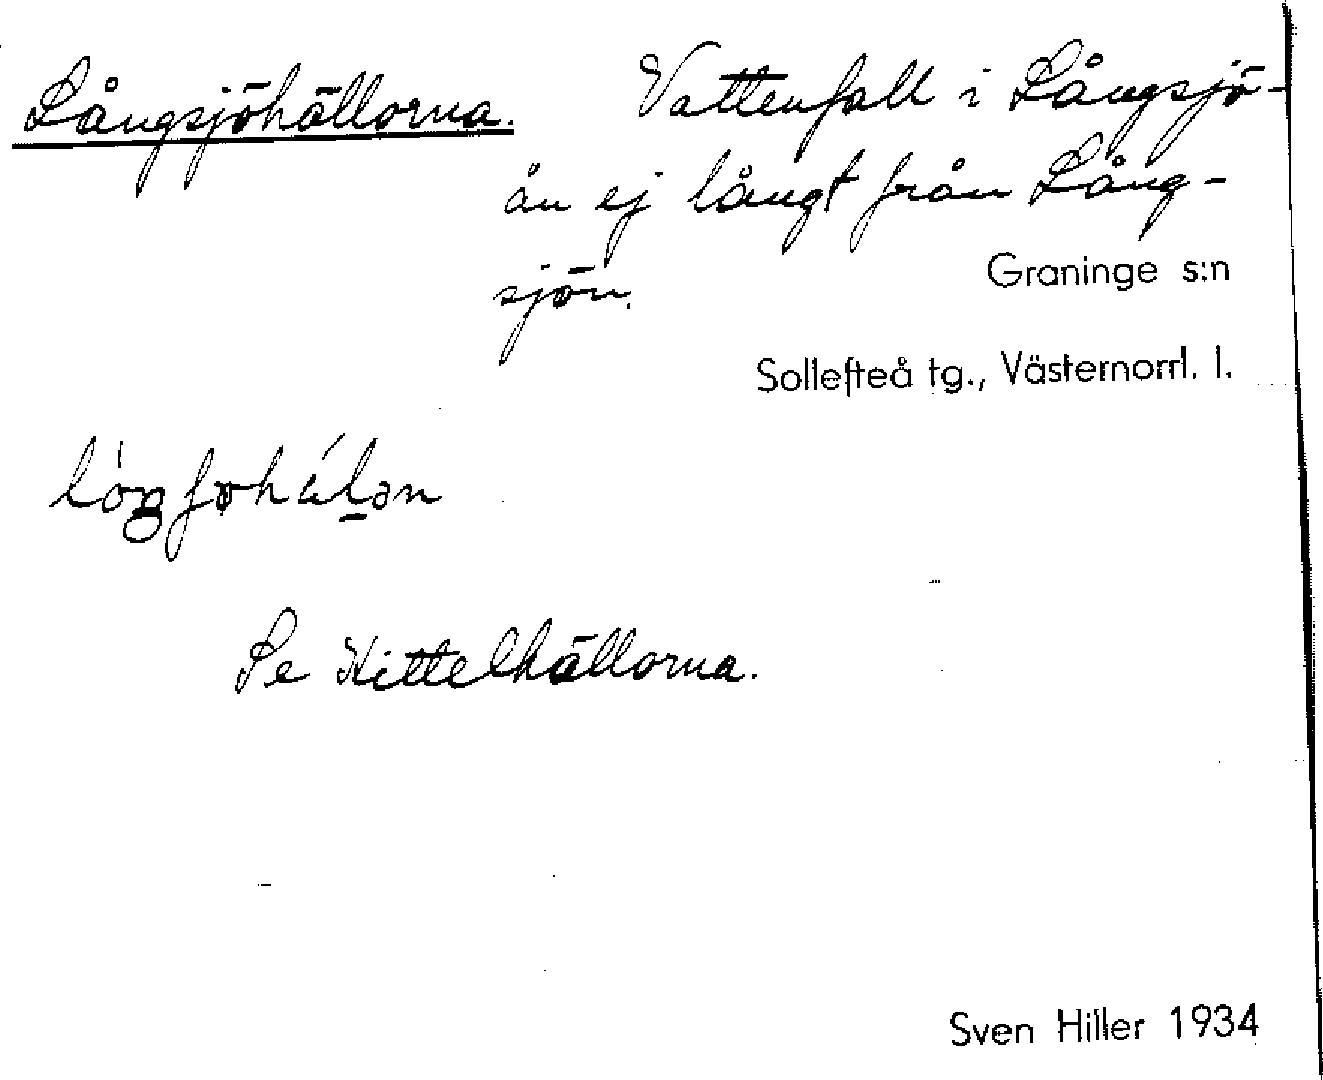 Långsjöhällorna. Vattenfall i Långsjö-
ån ej långt från Lång-
sjön.
Graninge s:n
Sollefteå tg., Västernorrl. l.
Se Kittelhällorna.
Sven Hiller 1934